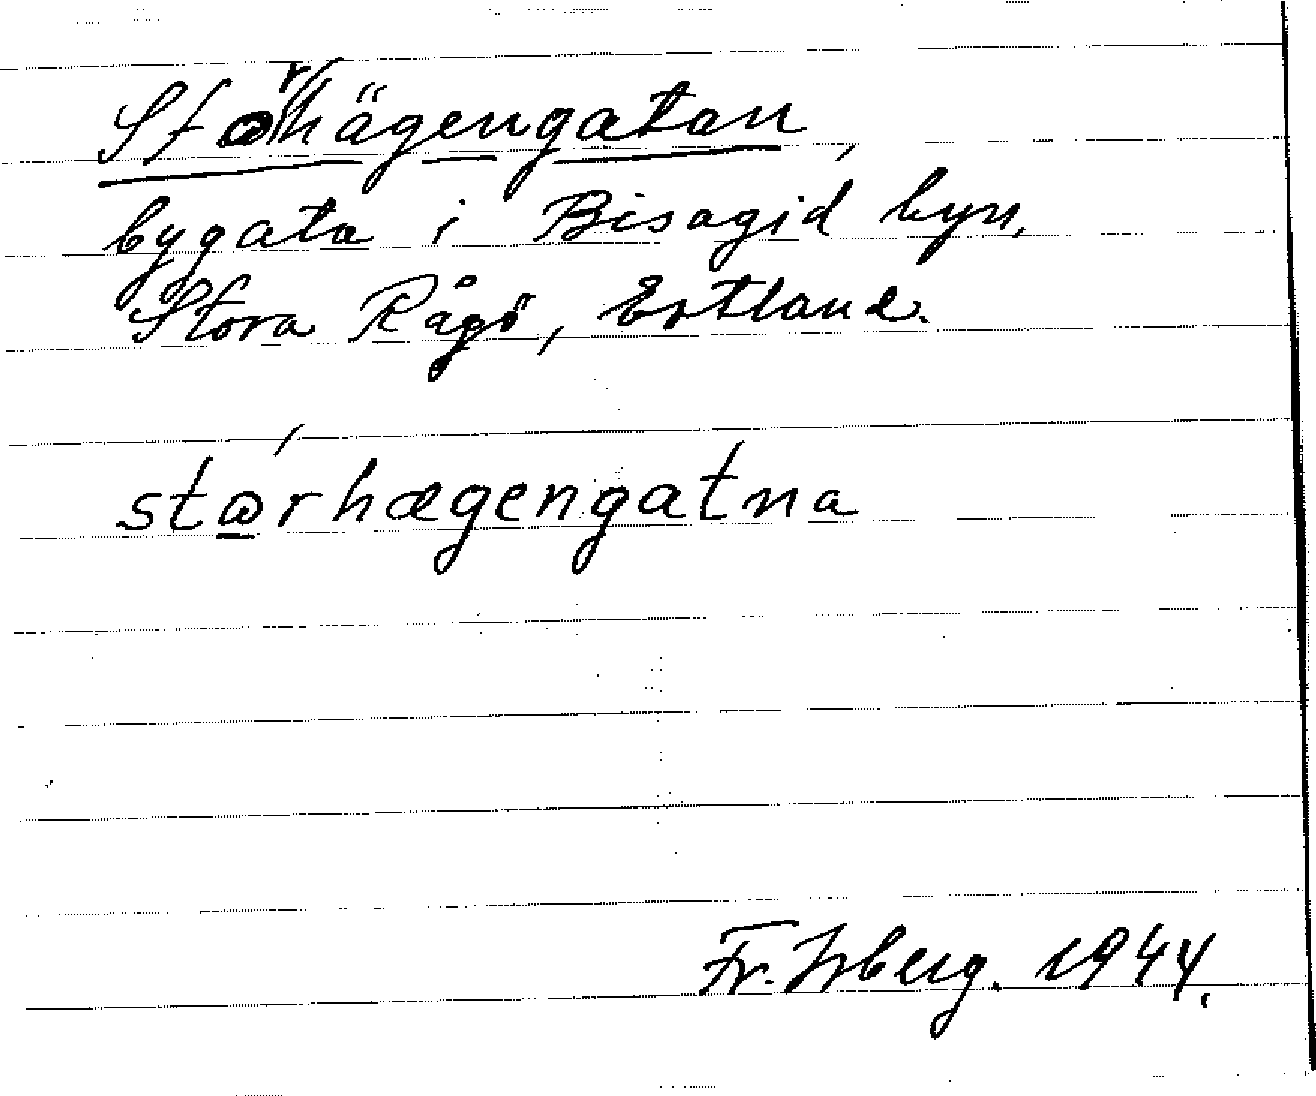 Storhägengatan,
bygata i Bisagid byn,
Stora Rågö, Estland.
stω̲rhægengatna
Fr. Isberg. 1944.